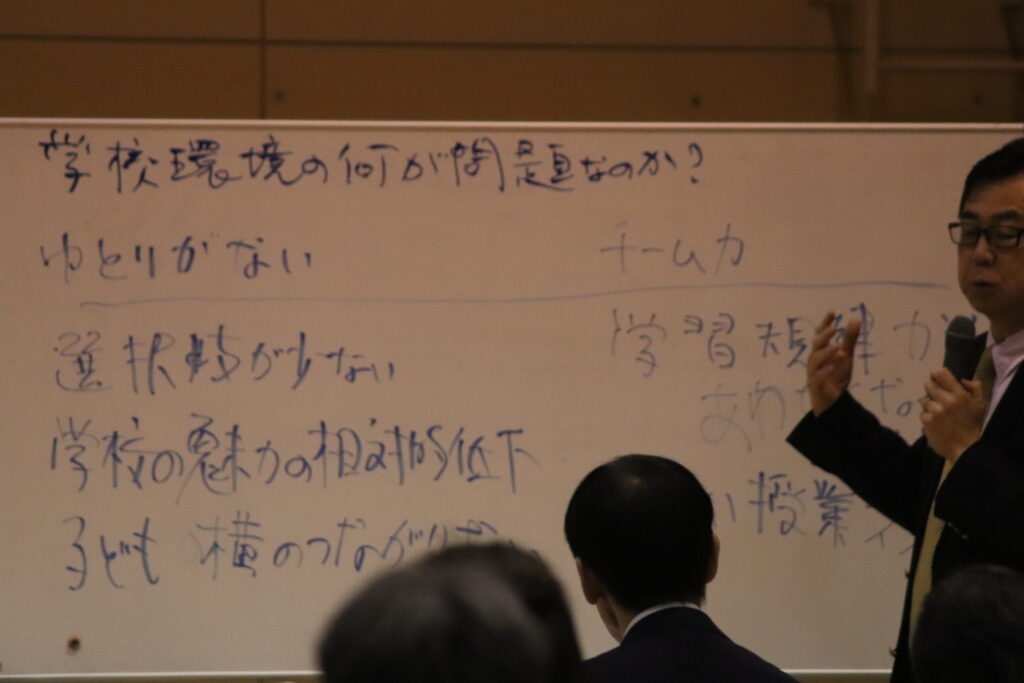 学校環境の何が問題なのか?
ゆとりがない
選択肢が少ない
学校の魅力の相対的低下
子ども 横のつながり
チーム力
学習規律が
あわ
授業